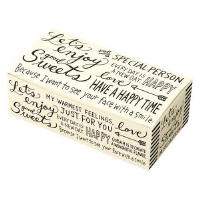 Let's
enjoy
good
Sweets
with
SPECIAL PERSON
EVERY DAY IS
A NEW DAY
HAPPY
love
HAVE A HAPPY TIME
Because I want to see your face with a smile
Let's
enjoy
Sweets
MY WARMEST FEELINGS,
JUST FOR YOU
love
EVERY DAY IS
A NEW DAY
HAPPY
Because I want to see your face with a smile